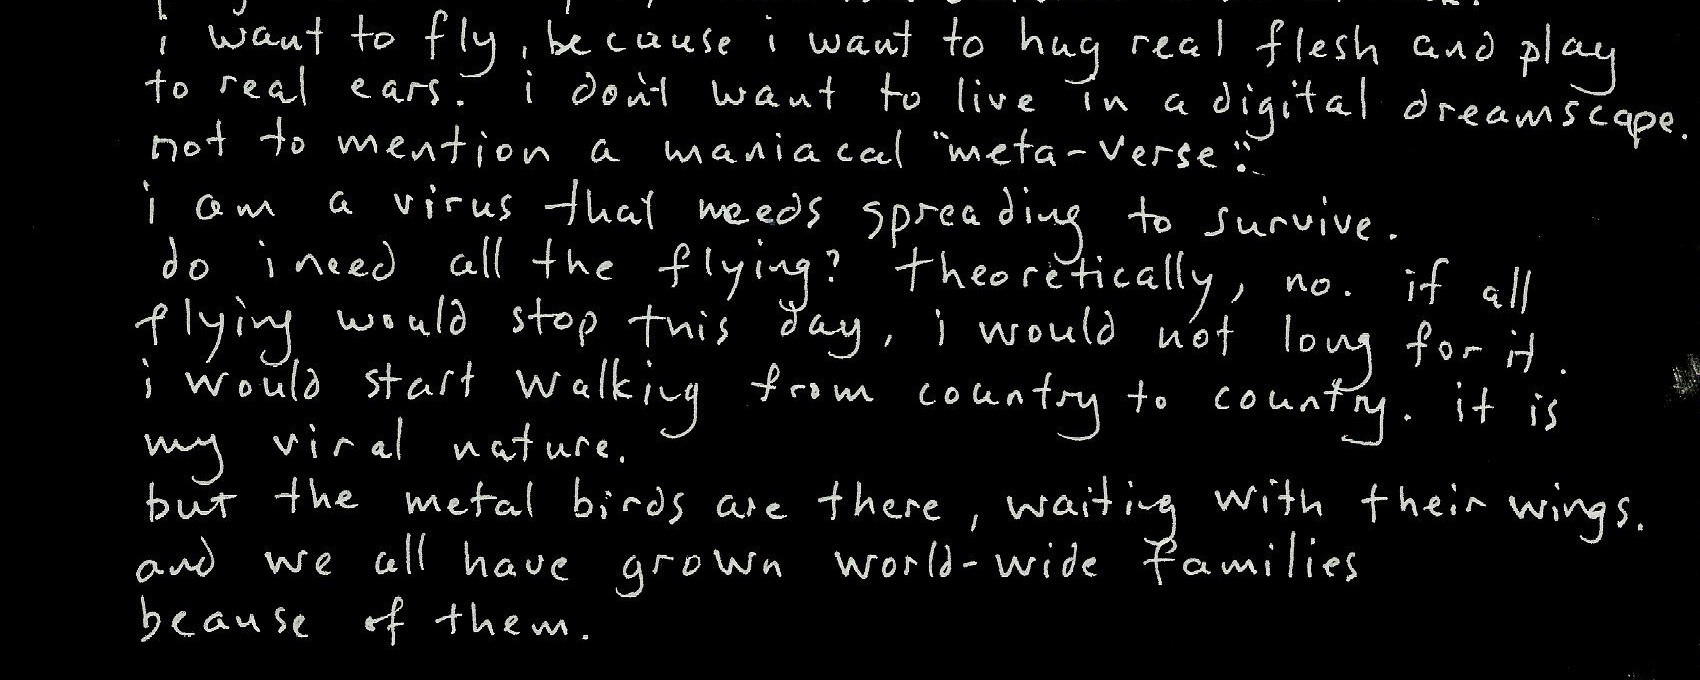 i want to fly, because i want to hug real flesh and play
to real ears. i don't want to live in a digital dreamscape.
not to mention a maniacal "meta-verse".
i am a virus that needs spreading to survive.
do i need all the flying? theoretically, no. if all
flying would stop this day, i would not long for it.
i would start walking from country to country. it is
my viral nature.
but the metal birds are there, waiting with their wings.
and we all have grown world-wide families
beause of them.